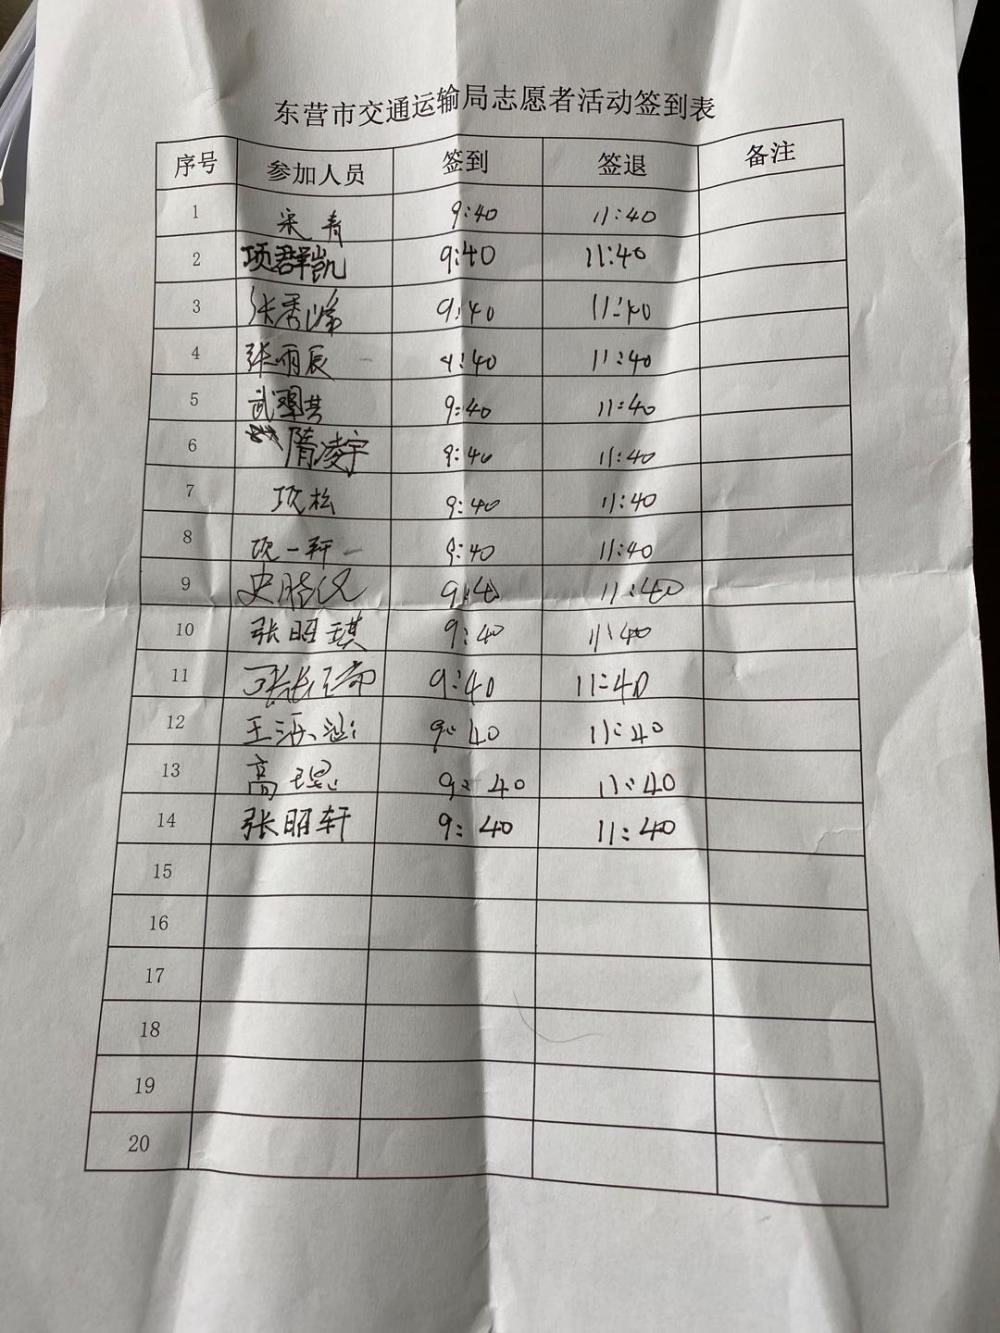 东营市交通运输局志愿者活动签到表
序号 参加人员 签到 签退 备注
1 宋青 9:40 11:40
2 项群凯 9:40 11:40
3 张秀峰 9:40 11:40
4 张雨辰 9:40 11:40
5 武 9:40 11:40
6 隋凌宇 9:40 11:40
7 项松 9:40 11:40
8 项一轩 9:40 11:40
9 史 9:40 11:40
10 张昭琪 9:40 11:40
11 9:40 11:40
12 王 9:40 11:40
13 高琨 9:40 11:40
14 张昭轩 9:40 11:40
15
16
17
18
19
20